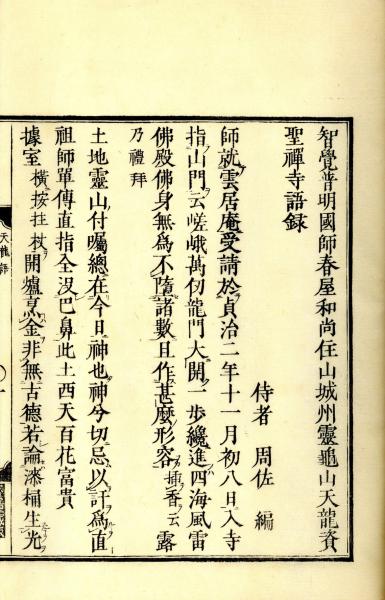 智覺普明國師春屋和尚住山城州靈龜山天龍資
聖禪寺語録
侍者 周佐 編
師就雲居庵受請於貞治二年十一月初八日入寺
指山門云嵯峨萬仭龍門大開一歩纔進四海風雷
佛殿佛身無為不墮諸數且作甚麼形容挿香云露
乃禮拜
土地靈山付囑總在今日神也神今切忌以訐為直
祖師單傳直指全沒巴鼻此土西天百花富貴
據室横按拄杖開爐烹金非無古德若論漆桶生光
天龍録